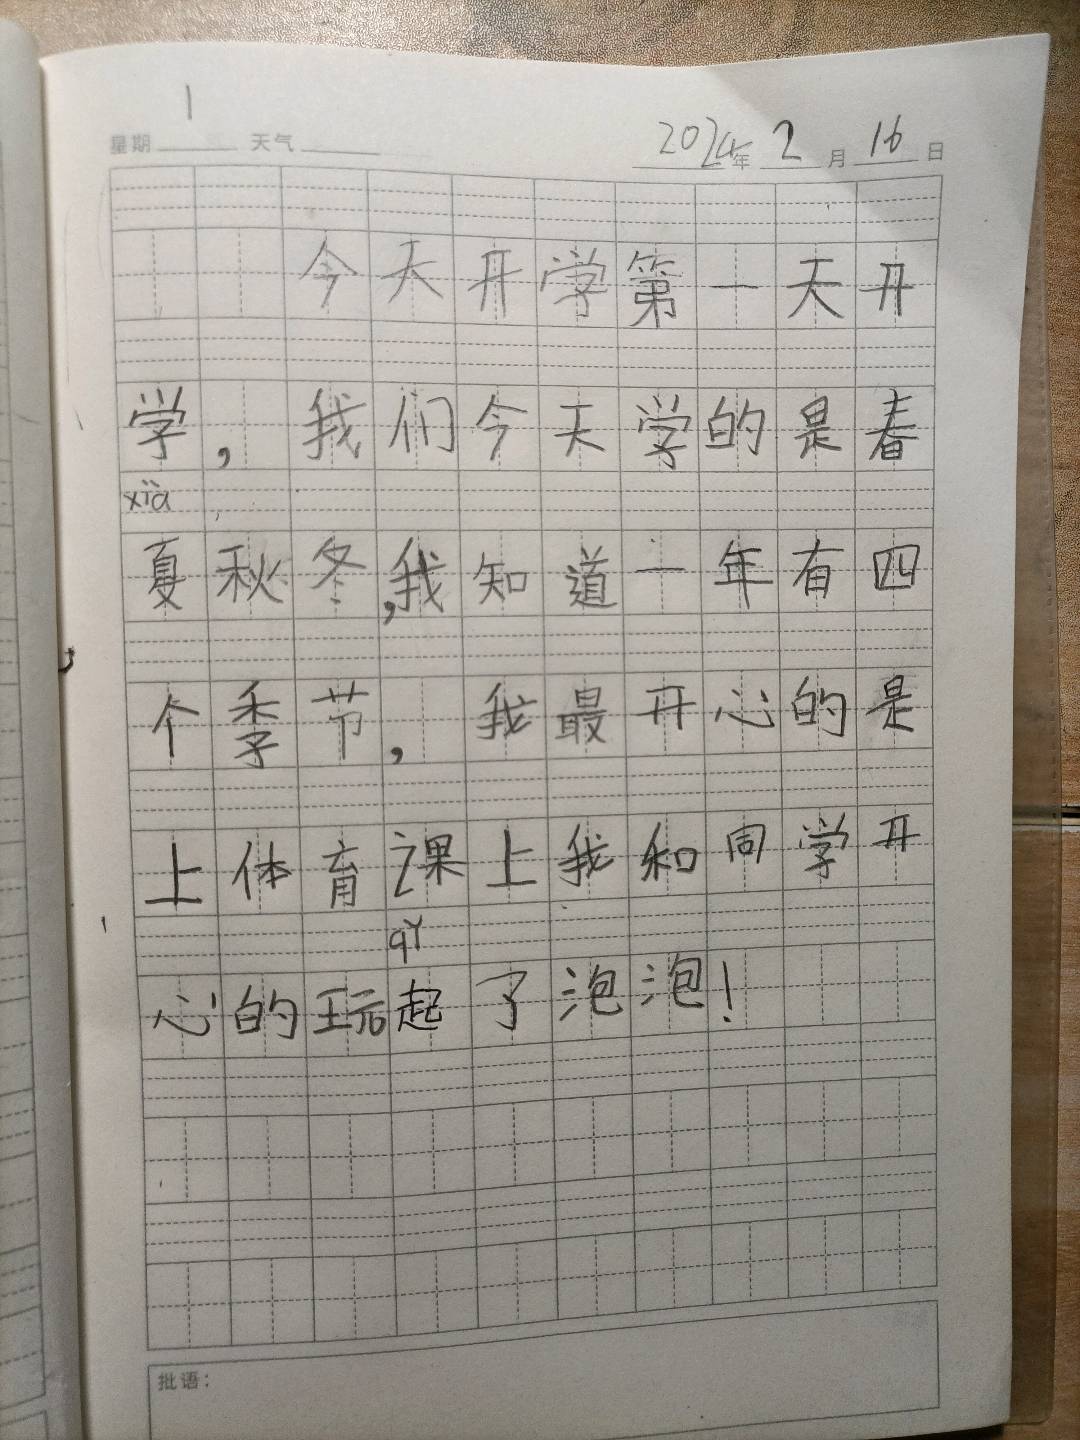 星期 1 天气 2024年 2月 16日
今天开学第一天开
学，我们今天学的是春
xià
夏秋冬,我知道一年有四
个季节，我最开心的是
上体育课上我和同学开
qǐ
心的玩起了泡泡！
批语：